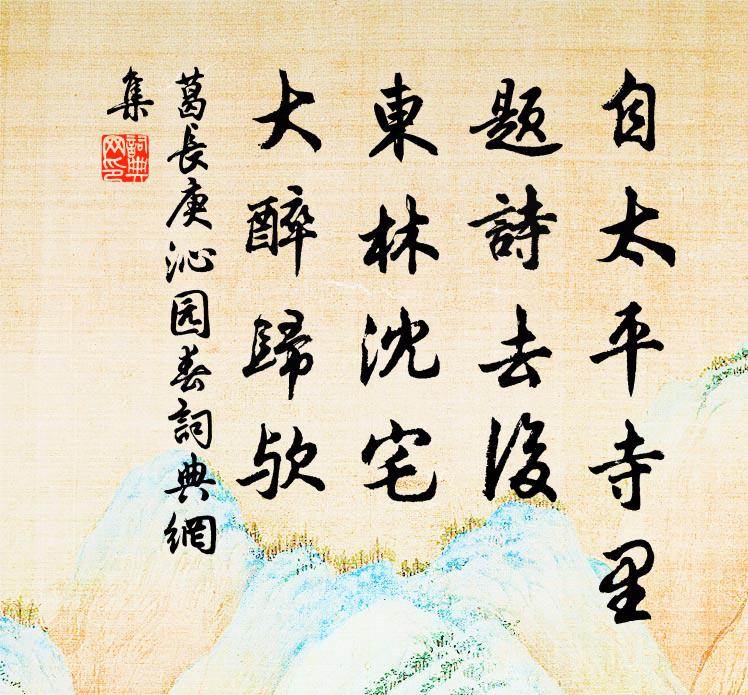 自太平寺里
題詩去後
東林沈宅
大醉歸欤
葛長庚沁园春詞典網
集
詞典网印